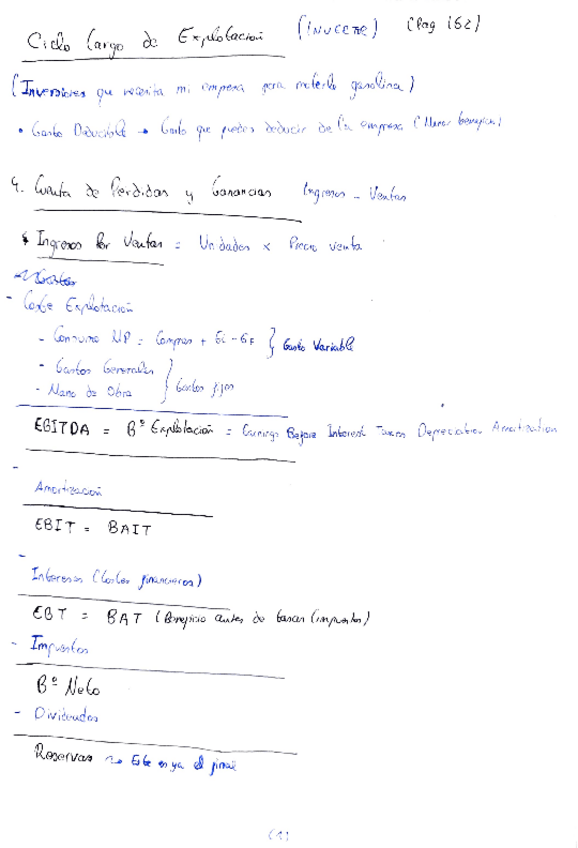 Ciclo Largo de Explotación (INVCCTE) (Pag 152)
(Inversiones que necesita mi empresa para meterle gasolina)
• Gasto Deducible → Gasto que puedes deducir de la empresa (Menor beneficio)
4. Cuenta de Perdidas y Ganancias Ingresos - Ventas
Ingresos Por Ventas = Unidades x Precio venta
- Coste Explotación
- Consumo MP = Compras + Ei - Ef } Gasto Variable
- Gastos Generales
- Mano de Obra } Gastos fijos
EBITDA = Bº Explotación = Earnings Before Interest Taxes Depreciation Amortization
-
Amortización
EBIT = BAIT
-
Intereses (Costes financieros)
EBT = BAT (Beneficio antes de tasas (impuestos)
- Impuestos
Bº Neto
- Dividendos
Reservas → Este es ya el final
(1)